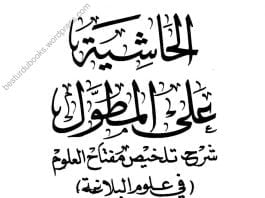 الحاشية
على المطول
شرح تلخيص مفتاح العلوم
(في علوم البلاغة)
besturdubooks.wordpress.com